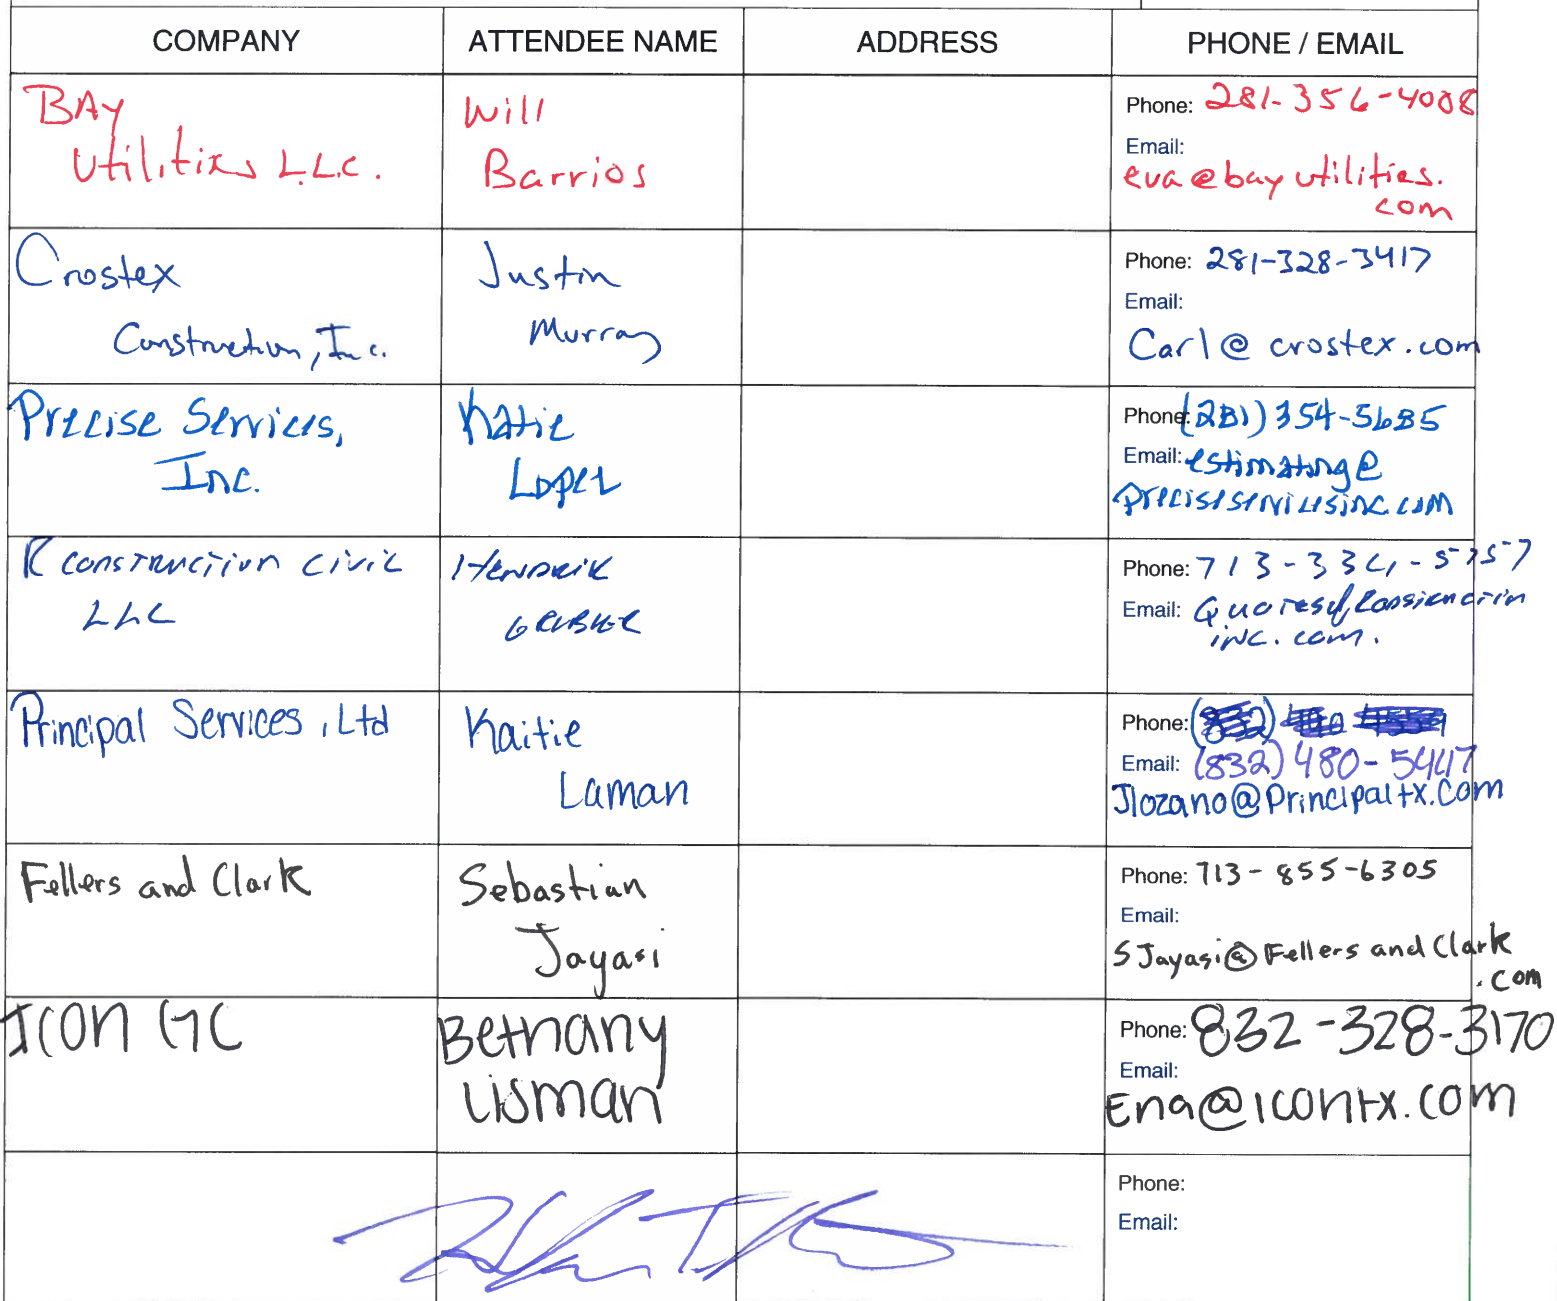 COMPANY ATTENDEE NAME ADDRESS PHONE / EMAIL
BAy
Utilities L.L.C.
Will
Barrios
Phone: 281-356-4008
Email:
eva@bayutilities.
com
Crostex
Construction, Inc.
Justin
Murray
Phone: 281-328-3417
Email:
Carl@crostex.com
Precise Services,
Inc.
Katie
Lopez
Phone: (281) 354-5685
Email: estimating@
preciseservicesinc.com
R CONSTRUCTION CIVIL
LLC
HENDRIK
Phone: 713-
Email:
inc.com.
Principal Services, Ltd
Kaitie
Laman
Phone:
Email: (832) 480-5447
Jlozano@Principaltx.com
Fellers and Clark
Sebastian
Jayasi
Phone: 713-855-6305
Email:
SJayasi@FellersandClark
.com
ICON GC
Bethany
Lisman
Phone: 832-328-3170
Email:
Ena@icontx.com
Phone:
Email: